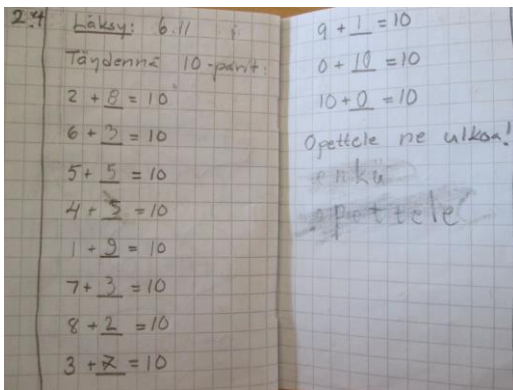 2.4
Läksy: 6.11
Täydennä 10-parit:
2 + 8 = 10
6 + 3 = 10
5 + 5 = 10
4 + 5 = 10
1 + 9 = 10
7 + 3 = 10
8 + 2 = 10
3 + 7 = 10
9 + 1 = 10
0 + 10 = 10
10 + 0 = 10
Opettele ne ulkoa!
enkä
opettele